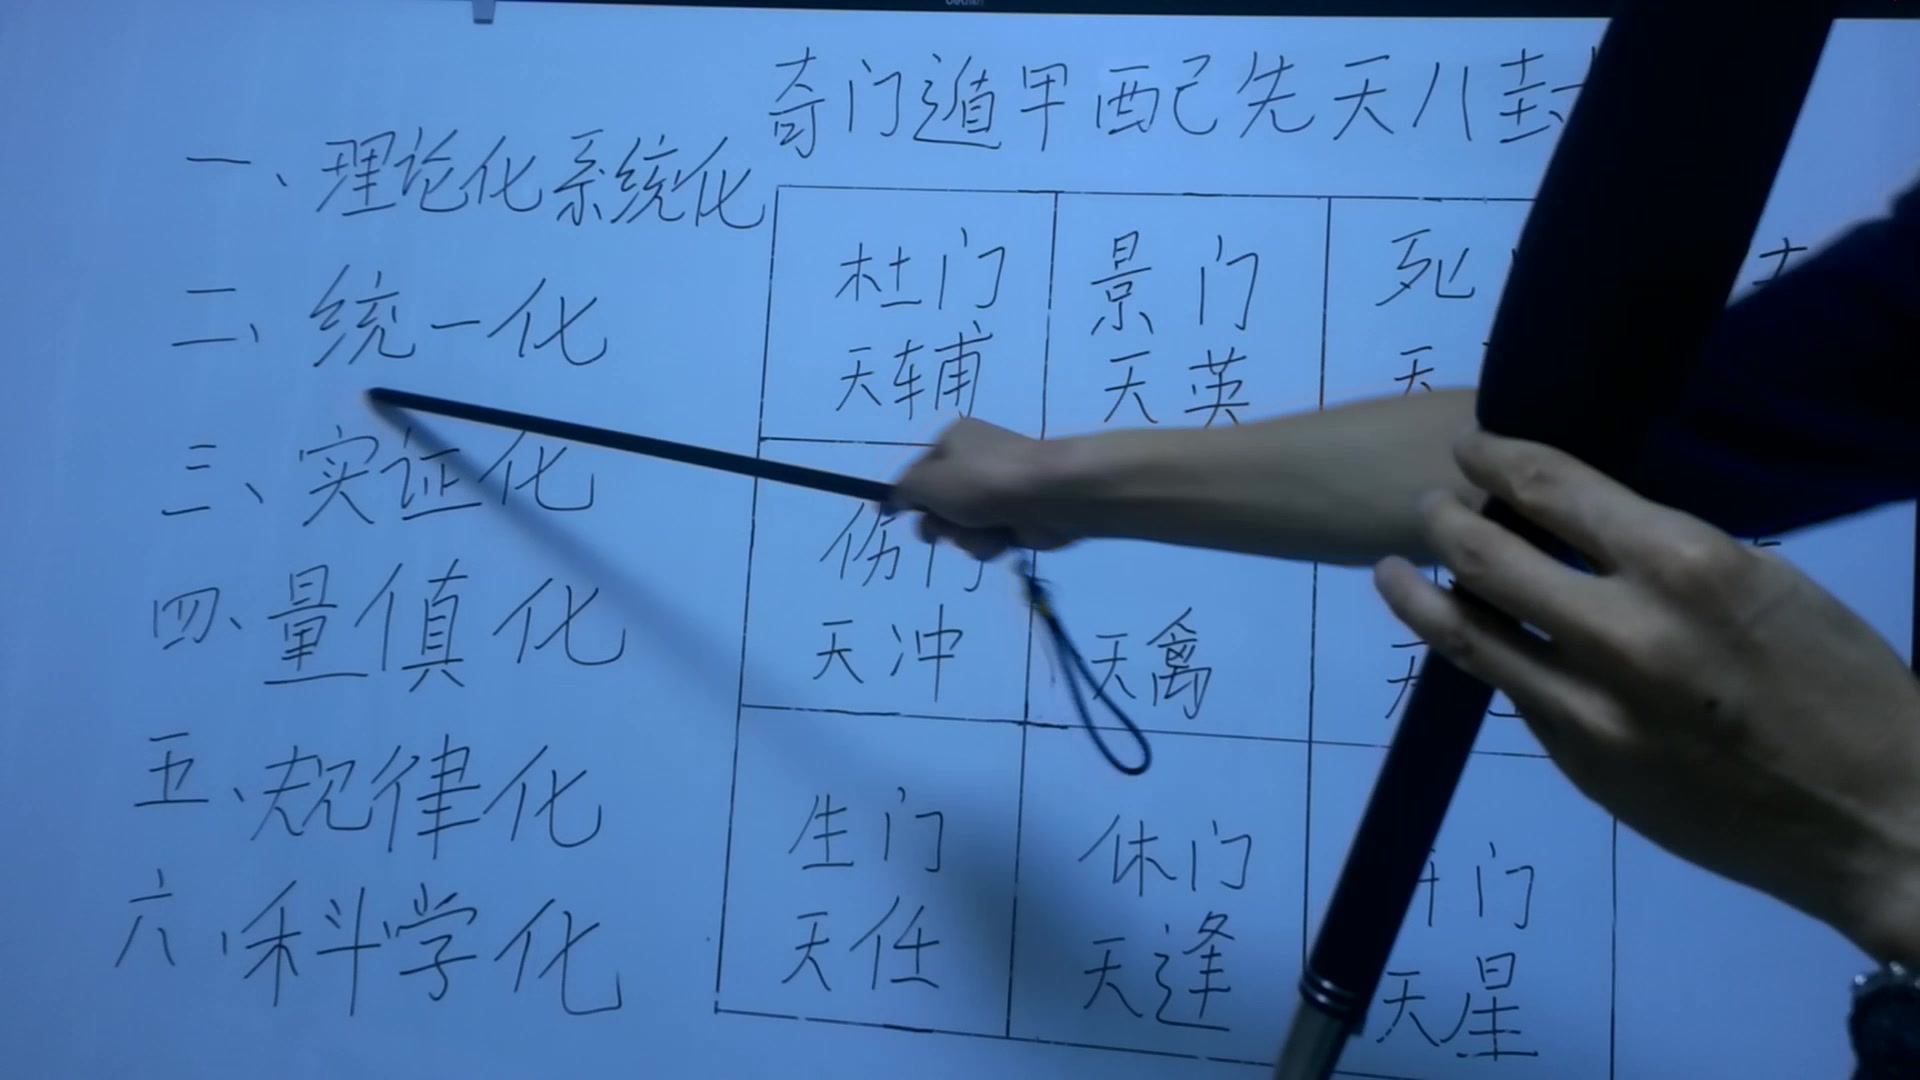 奇门遁甲配先天八卦
一、理论化系统化
二、统一化
三、实证化
四、量值化
五、规律化
六、科学化
杜门
天辅
景门
天英
死
天
伤门
天冲
天禽
生门
天任
休门
天逢
门
天星